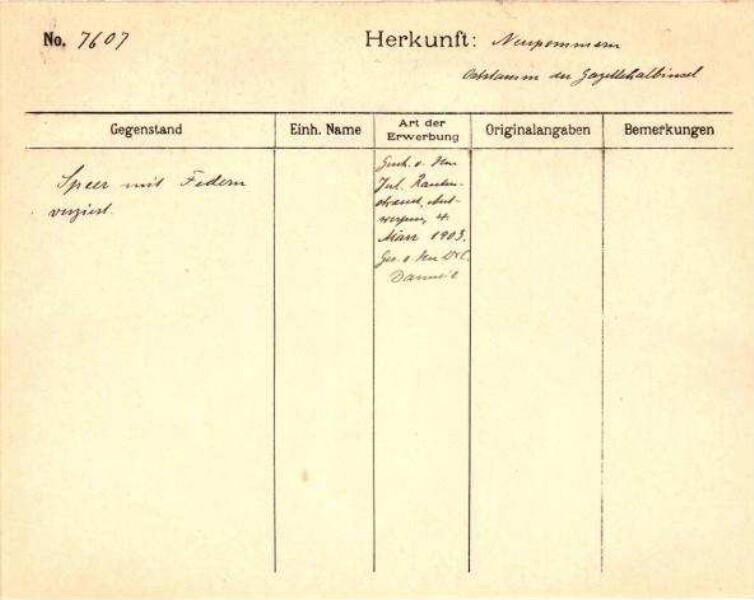 No. 7607
Herkunft: Neupommern
Oststamm der Gazellehalbinsel
Gegenstand
Einh. Name
Art der Erwerbung
Originalangaben
Bemerkungen
Speer mit Federn
verziert.
Gesch. v. Herrn
Jul. Rauten-
strauch, Ant-
werpen, 4.
März 1903.
Ges. v. Herrn Dr. C.
Danneil